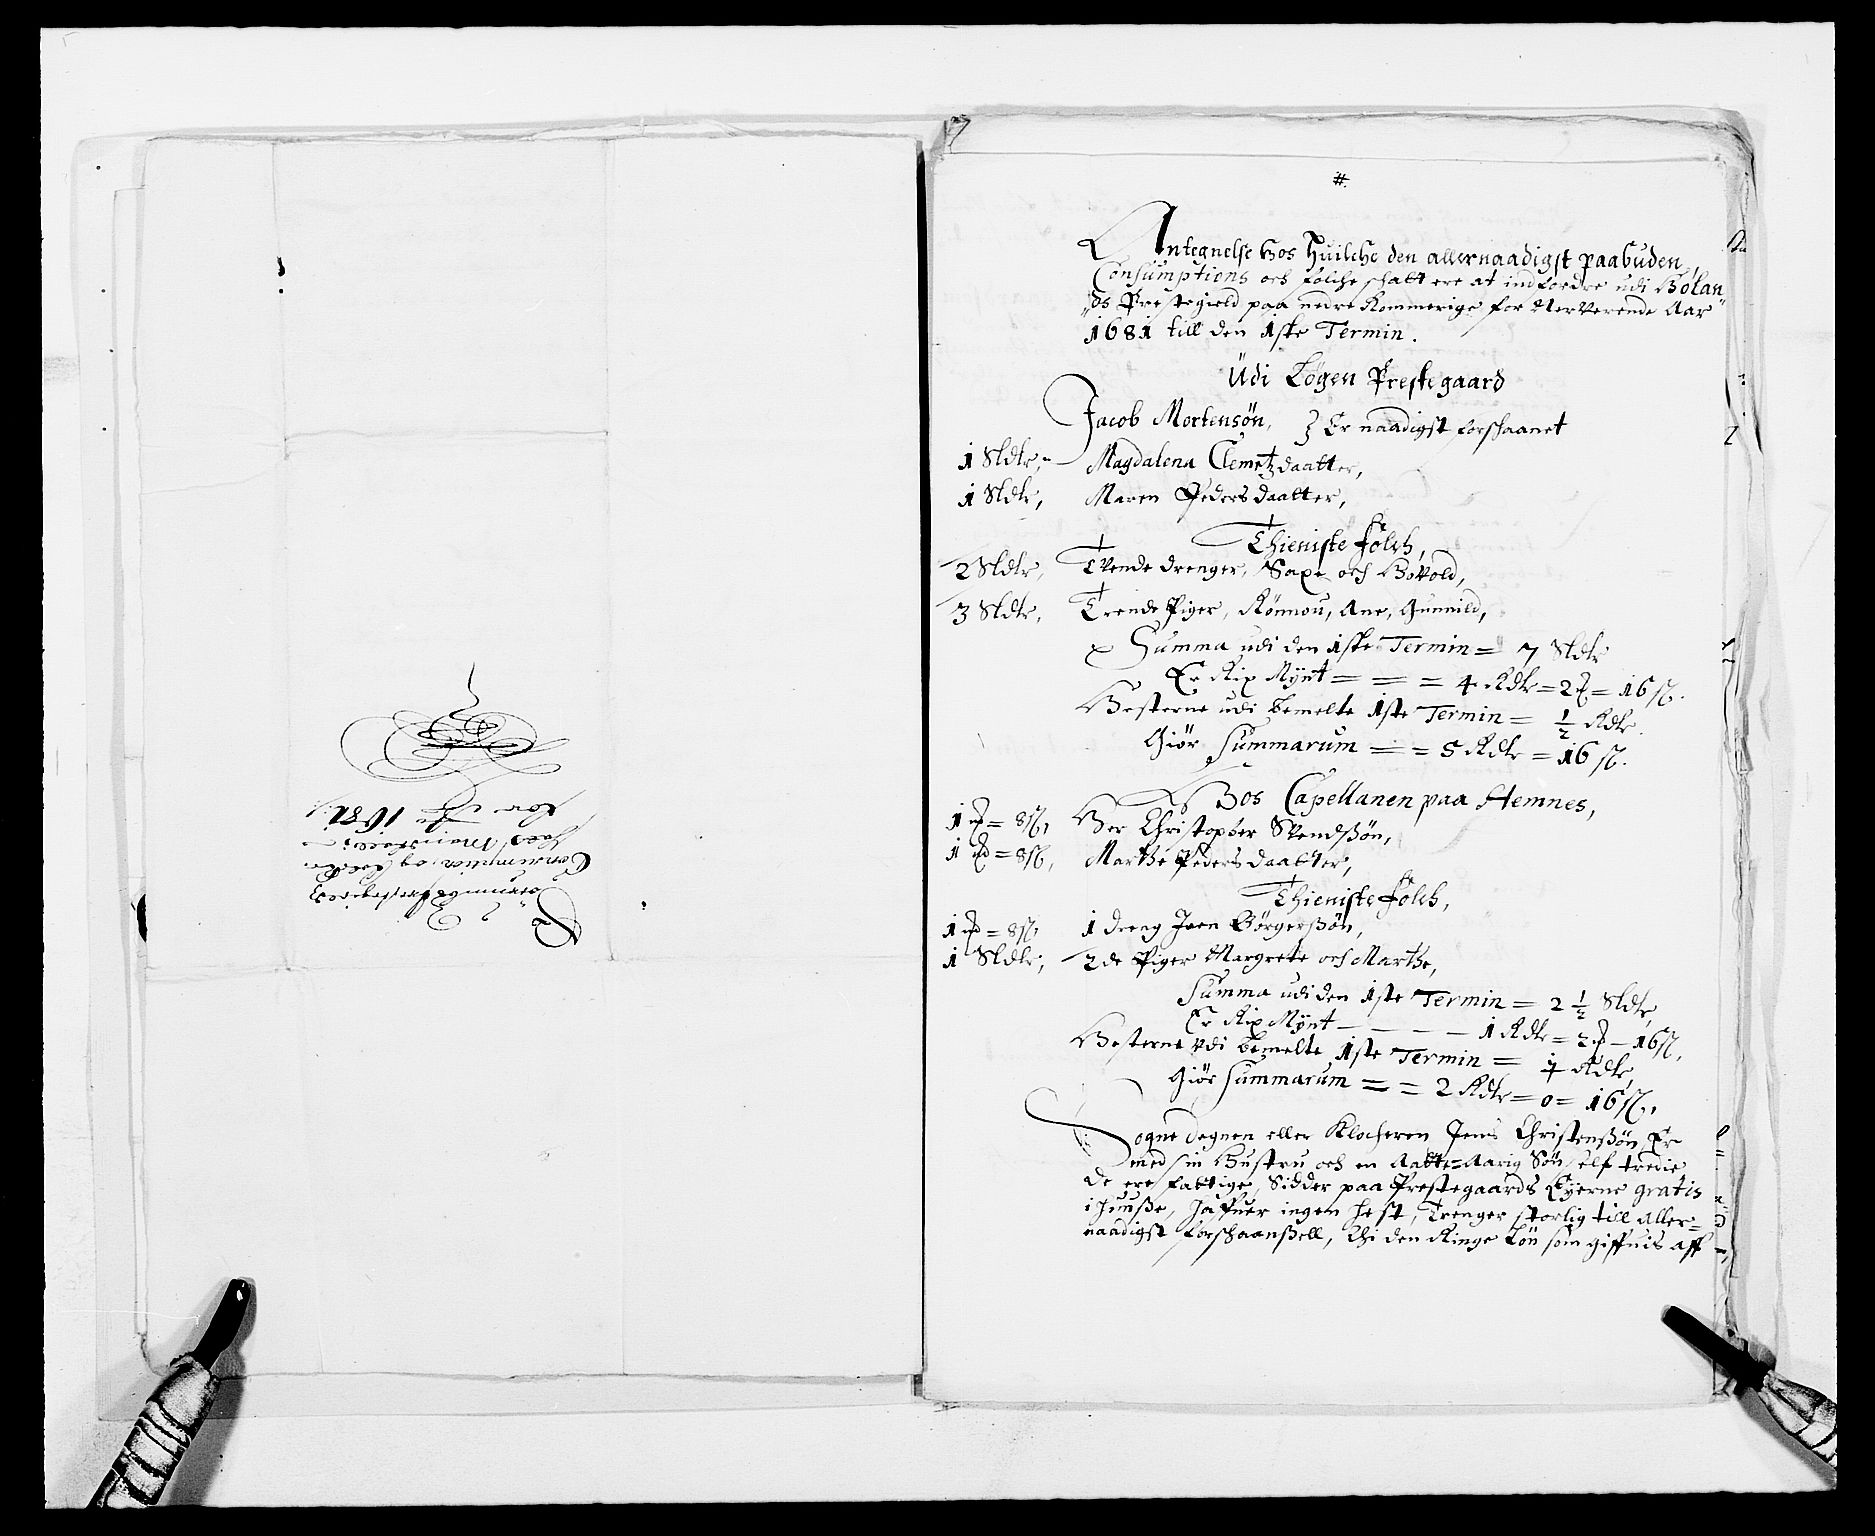 #.
Antegnelse hos Huilche den allernaadigst paabuden,
Consumptions och folche schatt ere at indfordre udi Hólan
ds Prestegield paa nedre Rommerige for Nerverende Aar
1681 till den 1ste Termin.
Udi Løgen Prestegaard
Jacob Mortensön, Er naadigst forschaanet
1 Sldlr, Magdalena Clemetzdaatter,
1 Sldlr, Maren Pedersdaatter,
Thieniste folch,
2 Sldlr, Tvende drenger, Saxe och Bovold,
3 Sldlr, Trende Piger, Rönnou, Ane, Gunnild,
Summa udi den 1ste Termin = 7 Sldlr
Er Rix Mÿnt = = = 4 Rdlr = 2 = 16 s.
Hesterne udi bemelte 1ste Termin = 1/2 Rdlr.
Giör Summarum = = 5 Rdlr = 16 s.
Hos Capellanen paa Hemnes,
1 = 8 s, Her Christopher Svendßön,
1 = 8 s, Marthe Pedersdaatter,
Thieniste folch,
1 = 8 s, 1 dreng Joen Börgerßön,
1 Sldlr, 2de Piger Margrete och Marthe,
Summa udi den 1ste Termin = 2 1/2 Sldlr,
Er Rix Mÿnt - - - - 1 Rdlr = 2 - 16 s,
Hesterne vdi bemelte 1ste Termin = Rdlr,
Giör Summarum = = 2 Rdlr = 0 = 16 s,
Sogne degnen eller Klocheren Jens Christenßön, Er
med sin Hustru och en Aatte-Aarig Sön self tredie
de ere fattige, Sidder paa Prestegaards Eyerne gratis
i huuße, haffuer ingen hest, Trenger storlig till Aller=
naadigst forschaanßell, thi den Ringe Lön som giffuis aff
Prestegields
Consumption og folche
For Ao 1681